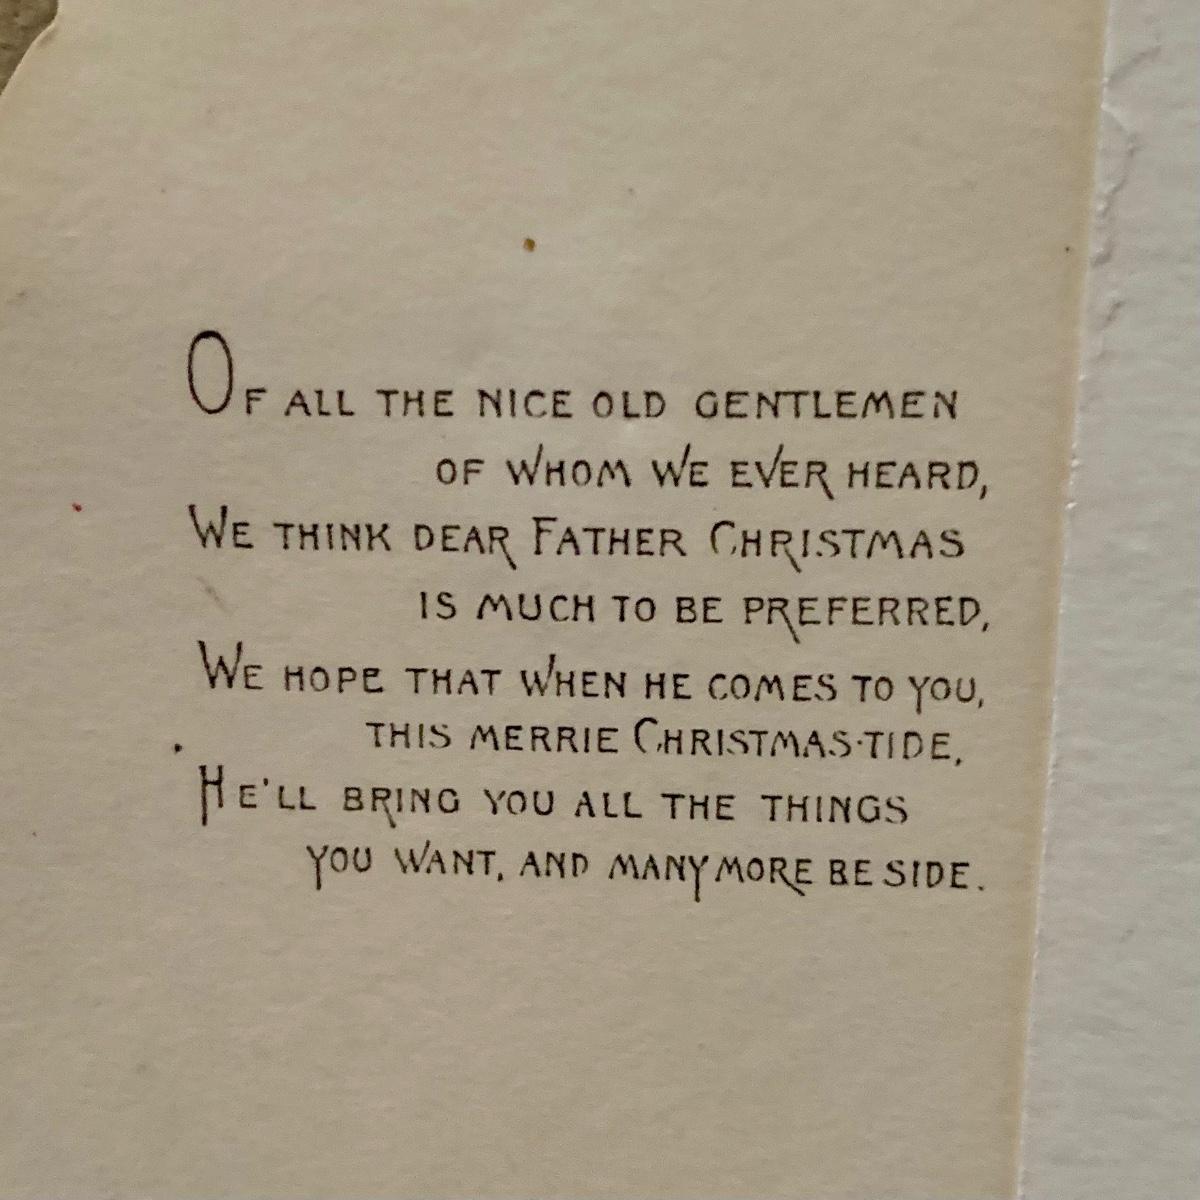 Of all the nice old gentlemen
of whom we ever heard,
We think dear Father Christmas
is much to be preferred,
We hope that when he comes to you,
this merrie Christmas-tide,
He'll bring you all the things
you want, and many more beside.